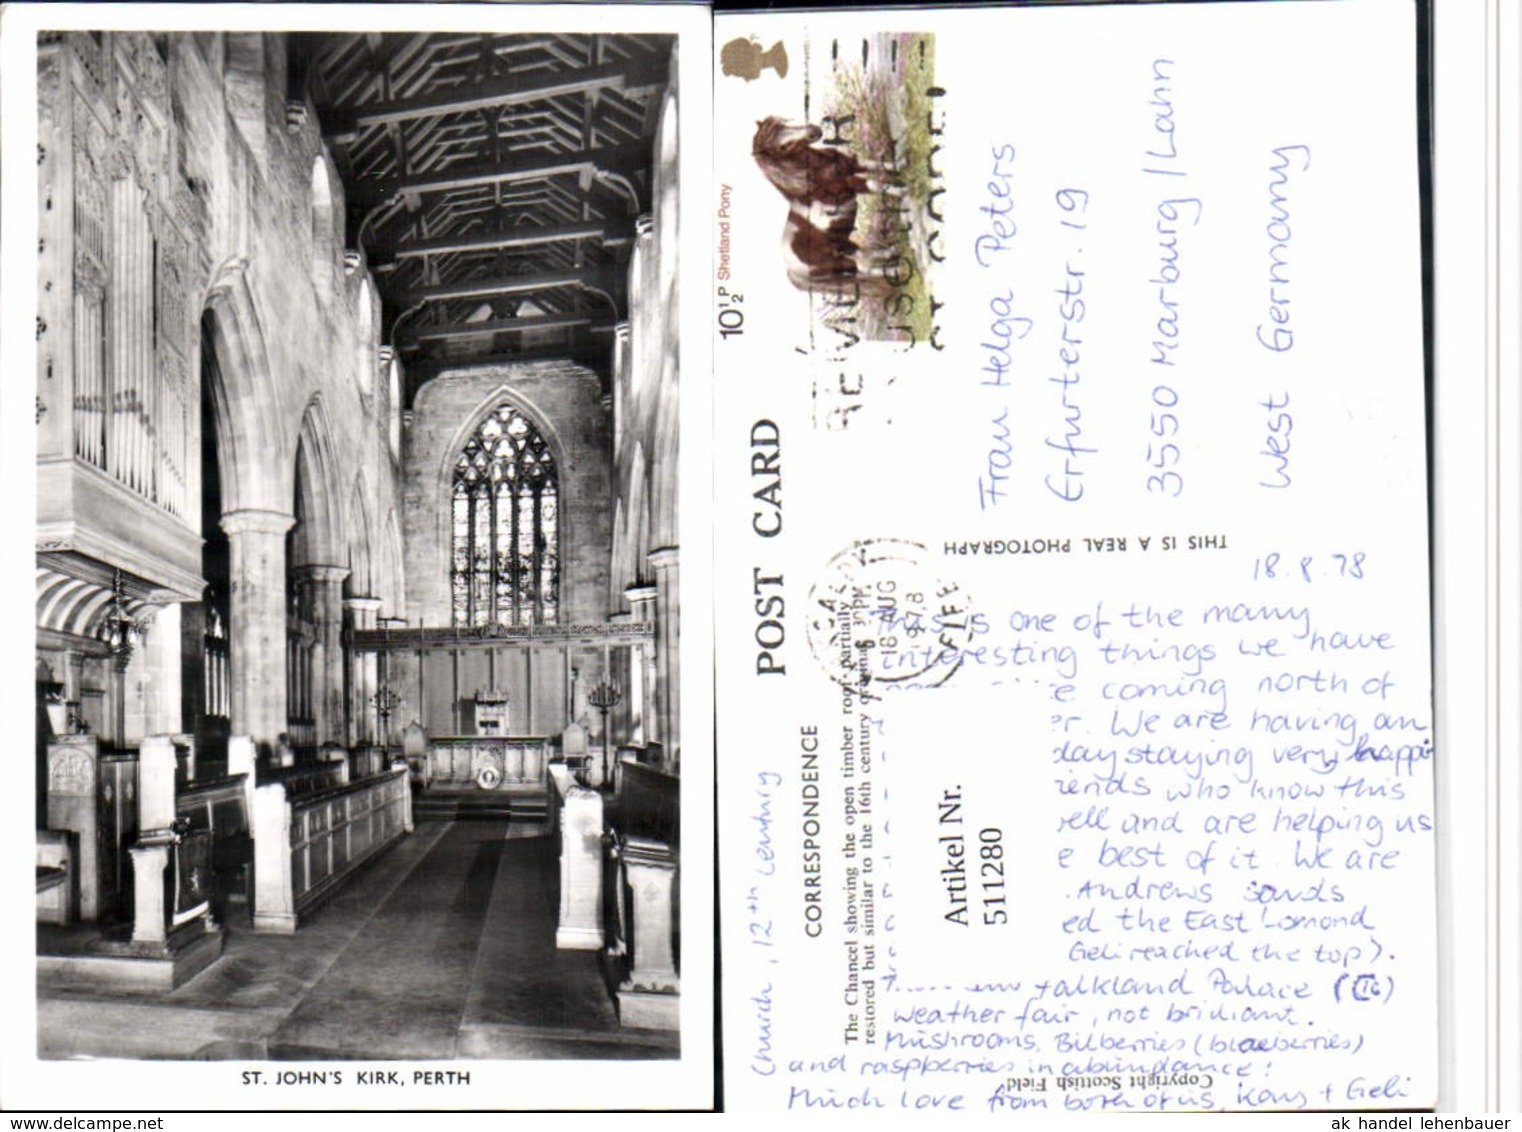 ST. JOHN'S KIRK, PERTH
10½P Shetland Pony
POST CARD
CORRESPONDENCE
The Chancel showing the open timber roof partially
restored but similar to the 16th century
THIS IS A REAL PHOTOGRAPH
Copyright Scottish Field
6 PM
18 AUG
1978
FIFE
Frau Helga Peters
Erfurterstr. 19
3550 Marburg / Lahn
West Germany
18.8.78
This is one of the many
interesting things we have
coming north of
We are having an
day staying very happi
who know this
and are helping us
best of it. We are
Andrews sands
ed the East Lomond
Geli reached the top).
Falkland Palace (16)
weather fair, not brilliant.
Mushrooms, Bilberries (blaeberries)
and raspberries in abundance!
Much love from both of us, + Geli
Church, 12th century
Artikel Nr.
511280
ak handel lehenbauer